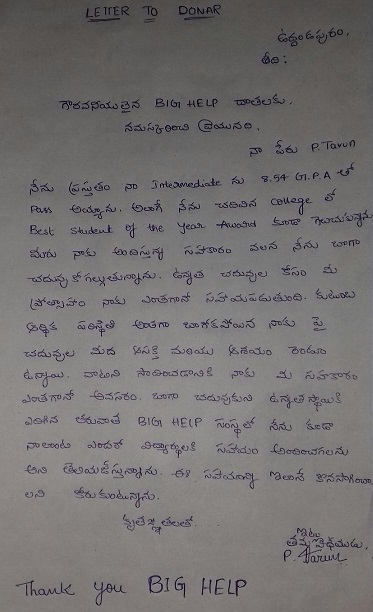 LETTER TO DONAR
ఉద్దండపురం,
తేది:
గౌరవనీయులైన BIG HELP దాతలకు,
నమస్కరించి వ్రాయునది,
నా పేరు P. Tarun
నేను ప్రస్తుతం నా Intermediate ను 8.54 G.P.A తో
Pass అయ్యాను. అలాగే నేను చదివిన college లో
Best student of the Year Award కూడా గెలుచుకున్నాను
మీరు నాకు అందిస్తున్న సహకారం వలన నేను బాగా
చదువుకోగల్గుతున్నాను. ఉన్నత చదువుల కోసం మీ
ప్రోత్సాహం నాకు ఎంతగానో సహాయపడుతుంది. కుటుంబ
ఆర్థిక పరిస్థితి అంతగా బాగోకపోయిన నాకు పై
చదువుల మీద ఆసక్తి మరియు ఆశయం రెండూ
ఉన్నాయి. వాటిని సాధించడానికి నాకు మీ సహకారం
ఎంతగానో అవసరం. బాగా చదువుకుని ఉన్నత స్థాయికి
ఎదిగిన తరువాత BIG HELP సంస్థలో నేను కూడా
నాలాంటి ఎందరో విద్యార్థులకి సహాయం అందించగలను
అని తెలియజేస్తున్నాను. ఈ సహాయాన్ని ఇలానే కొనసాగించా
లని కోరుకుంటున్నాను.
కృతజ్ఞతలతో,
ఇట్లు
తమ విధేయుడు,
P. Tarun
Thank you BIG HELP